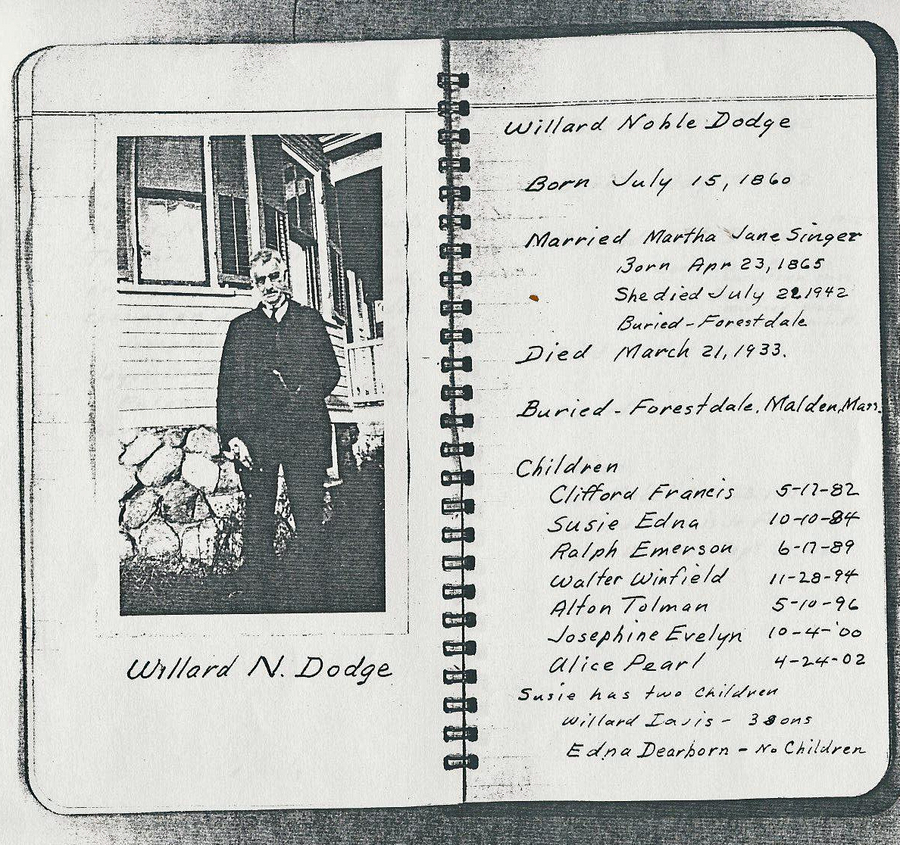 Willard N. Dodge
Willard Noble Dodge
Born July 15, 1860
Married Martha Jane Singer
Born Apr 23, 1865
She died July 22, 1942
Buried - Forestdale
Died March 21, 1933.
Buried - Forestdale, Malden, Mass.
Children
Clifford Francis 5-17-82
Susie Edna 10-10-84
Ralph Emerson 6-17-89
Walter Winfield 11-28-94
Alton Tolman 5-10-96
Josephine Evelyn 10-4-'00
Alice Pearl 4-24-02
Susie has two children
Willard - 3 sons
Edna Dearborn - No Children